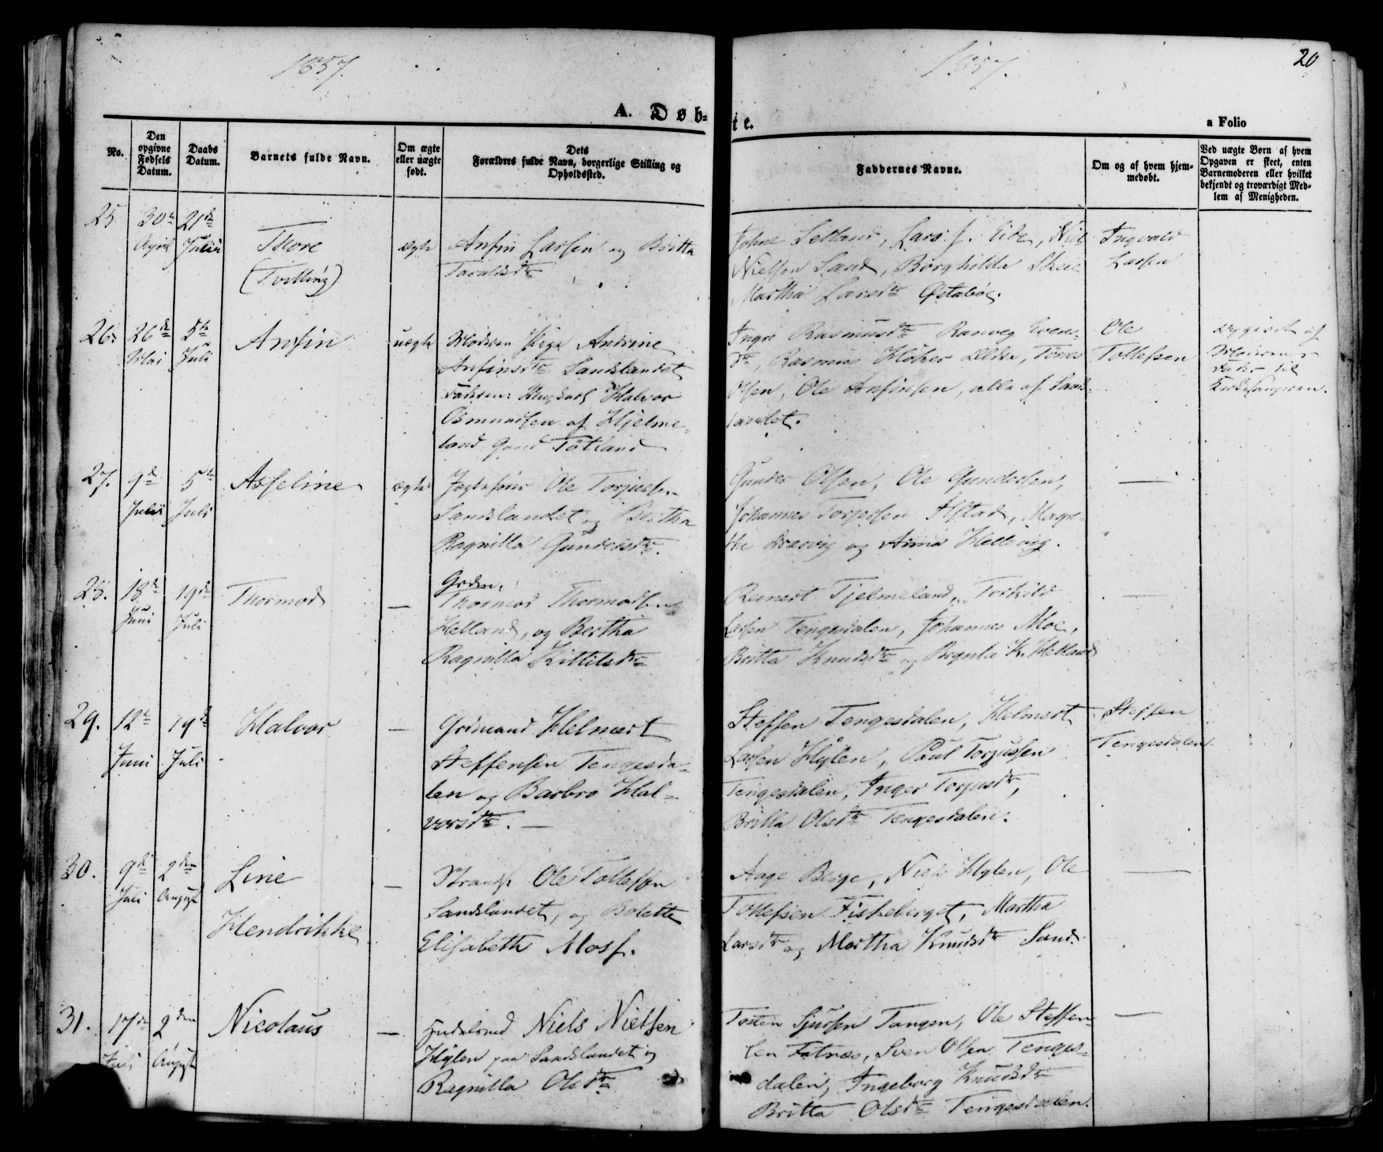 1857.
1857.
20
A. Døb-
te.
a Folio
No.
Den opgivne Fødsels Datum.
Daabs Datum.
Barnets fulde Navn.
Om ægte eller uægte født.
Dets Forældres fulde Navn, borgerlige Stilling og Opholdssted.
Faddernes Navne.
Om og af hvem hjemmedøbt.
Ved uægte Børn af hvem Opgaven er skeet, enten Barnemoderen eller hvilket bekjendt og troværdigt Medlem af Menigheden.
25
30te April
21de Juli
Thore
(Tvilling)
ægte
Anfin Larsen og Britta
Johne Selland, Lars Eide, Niels
Nielsen Sand, Borghilda Skeie
Martha Larsdtr Østabøe.
Ingvald
Larsen
26
26de Mai
5te Juli
Anfin
uægte
Moderen Pige Andrine
Anfinsdtr Sandslandet
Faderen: Ungkarl Halvor
Osmundsen af Hjelme-
land Gaard Tøtland
Inger Rasmusdtr
Olsen, Ole Anfinsen, alle af Sands-
landet.
Ole
Tollefsen
opgivet af
Moderen
til
27.
9de Juni
5te Juli
Asseline
ægte
Ole Torjusen
Sandslandet og Bertha
Ragnilla Gundersdtr.
Gunder Olsen, Ole Gundersen,
Johannes Torgersen Alstad, Mag-
og Anna Hellvig.
28.
18de Juni
19de Juli
Thormod
—
Grdm.
Thormod Thormodsen
Helland, og Bertha
Ragnilla Kittilsdtr
Reinert Tjelmeland, Torkild
Larsen Tengesdalen, Johannes Moe,
Britta Knudsdtr og K. Helland
29.
12te Juni
19de Juli
Halvor
—
Grdmand Helmert
Steffensen Tengesda-
len og Barbro Hal-
vorsdtr. —
Steffen Tengesdalen, Helmert
Larsen Hylen, Paul Torjussen
Tengesdalen, Inger Torjusdtr,
Britta Olsdtr Tengesdalen.
Steffen
Tengesdalen.
30.
9de Juli
2den August
Line
Hendrikke
—
Ole Tollefsen
Sandslandet, og Bolette
Elisabeth Moss.
Aage Berge, Niels Hylen, Ole
Tollefsen Fiskeberget, Martha
Larsdtr og Martha Knudsdtr Sand.
31.
17de Juli
2den August
Nicolaus
—
Huusmand Niels Nielsen
Hylen paa Sandslandet og
Ragnilla Olsdtr
Tosten Sjursen Tangen, Ole Steffen-
sen Fatnes, Sven Olsen Tenges-
dalen, Ingeborg Knudsdtr
Britta Olsdtr Tengesdalen.